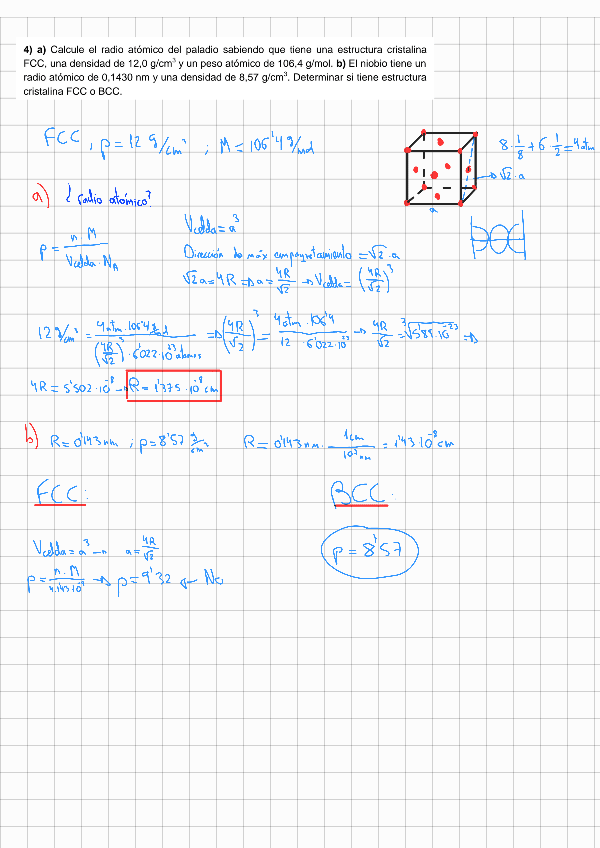 4) a) Calcule el radio atómico del paladio sabiendo que tiene una estructura cristalina
FCC, una densidad de 12,0 g/cm³ y un peso atómico de 106,4 g/mol. b) El niobio tiene un
radio atómico de 0,1430 nm y una densidad de 8,57 g/cm³. Determinar si tiene estructura
cristalina FCC o BCC.
FCC, ρ = 12 g/cm³ ; M = 106'4 g/mol
8·1/8 + 6·1/2 = 4 atm
√2·a
a
a) ¿radio atómico?
Vcelda = a³
ρ = n·M / Vcelda·NA
Dirección de máx empaquetamiento = √2·a
√2a = 4R → a = 4R/√2 → Vcelda = (4R/√2)³
12 g/cm³ = 4 atm·106'4 g/mol / (4R/√2)³·6'022·10²³ atomos → (4R/√2)³ = 4 atm·106'4 / 12 6'022·10²³ → 4R/√2 = ³√5'89·10⁻²³ →
4R = 5'502·10⁻⁸ → R = 1'375·10⁻⁸ cm
b) R = 0'143 nm ; ρ = 8'57 g/cm³ R = 0'143 nm · 1cm/10⁷nm = 1'43·10⁻⁸ cm
FCC:
BCC:
Vcelda = a³ → a = 4R/√2
ρ = 8'57
→ ρ = 9'32 ← No